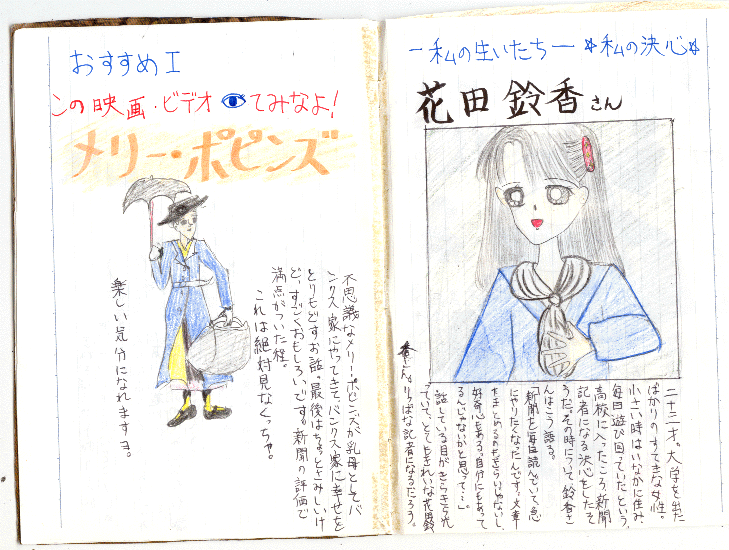 おすすめI
この映画・ビデオてみなよ!
メリー・ポピンズ
不思議なメリー・ポピンズが乳母としてバ
ンクス家にやってきて、バンクス家に幸せを
とりもどすお話。最後はちょっとさみしいけ
ど、すごくおもしろいです。新聞の評価で
満点がついた程。
これは絶対見なくっちゃ。
楽しい気分になれますョ。
ー私の生いたちー ☆私の決心☆
花田鈴香さん
二十二才。大学を出た
ばかりのすてきな女性。
小さい時はいなかに住み
毎日遊び回っていたという。
高校に入ったころ、新聞
記者になる決心をしたそ
うだ。その時について鈴香さ
んはこう語る。
「新聞を毎日読んでいて急
にやりたくなったんです。文章
をまとめるのもきらいじゃないし、
好奇心もある。自分にもあって
るんじゃないかと思って…。」
話している目がきらきら光
っていて、とてもきれいな花田鈴
香さん。りっぱな記者になるだろう。